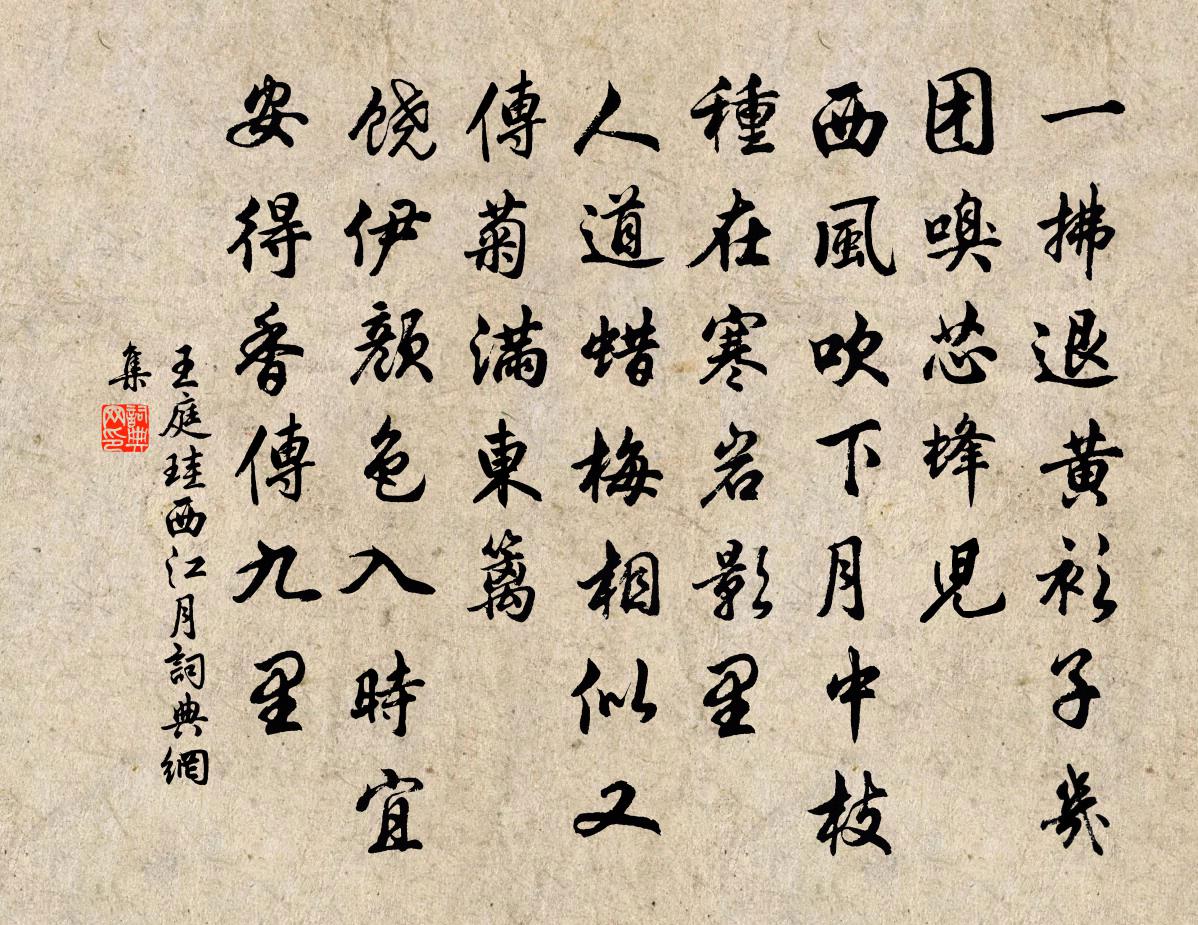 一拂退黄衫子幾
团嗅芯蜂児
西風吹下月中枝
種在寒岩影里
人道蜡梅相似又
傳菊滿東籬
饶伊顏色入時宜
安得香傳九里
王庭珪西江月詞典網
集
詞典
网印